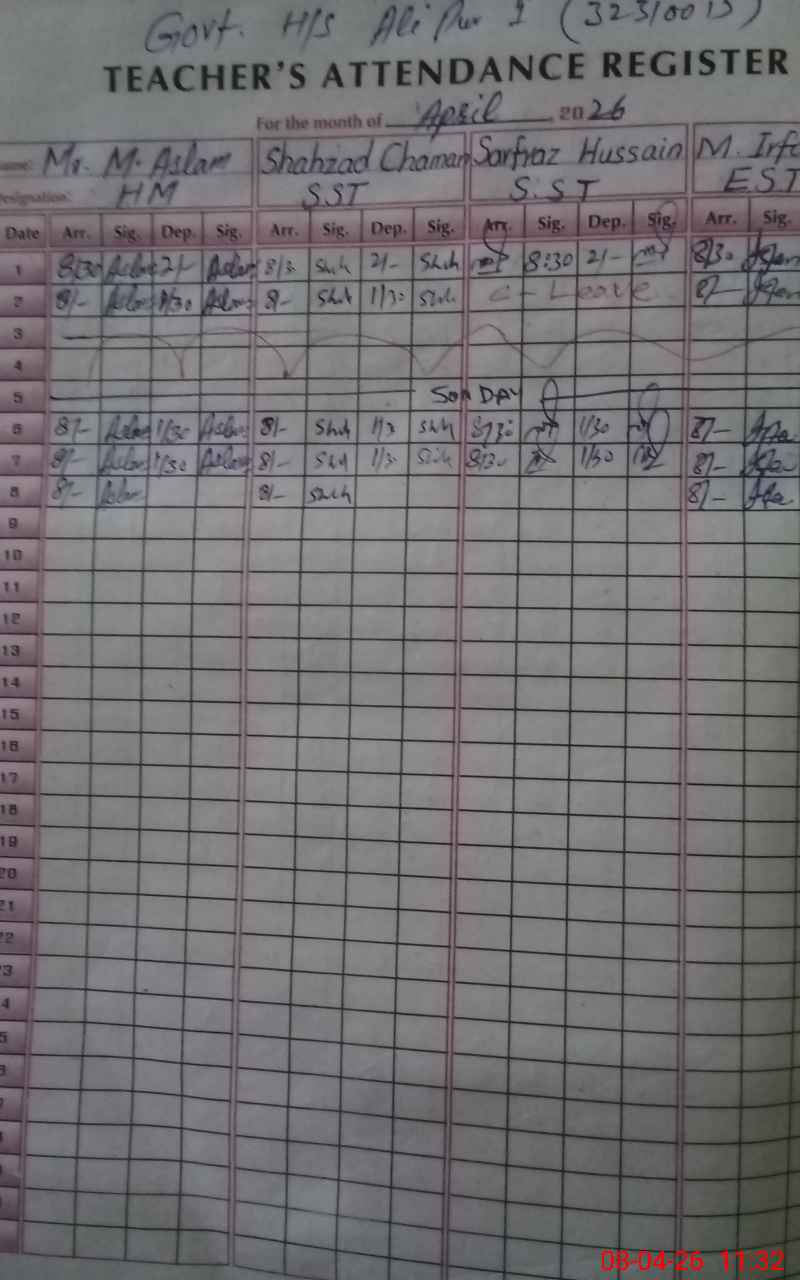 Govt. H/S Ali Pur 1 (32310013)
TEACHER'S ATTENDANCE REGISTER
For the month of April, 2026
Name: Mr. M. Aslam Shahzad Chaman Sarfraz Hussain M. Irf
Designation: HM SST S.ST E.S.T
Date Arr. Sig. Dep. Sig. Arr. Sig. Dep. Sig. Arr. Sig. Dep. Sig. Arr. Sig.
1 8/30 Aslam 2/- Aslam 8/3 Shah 2/- Shah 8:30 2/- 8/30
2 8/- Aslam 1/30 Aslam 8/- Shah 1/30 Shah C-Leave 8/-
3
4
5 SUNDAY
6 8/- Aslam 1/30 Aslam 8/- Shah 1/3 Shah 8/30 1/30 8/-
7 8/- Aslam 1/30 Aslam 8/- Shah 1/3 Shah 8/30 1/30 8/-
8 8/- Aslam 8/- Shah 8/-
9
10
11
12
13
14
15
16
17
18
19
20
21
22
23
4
5
08-04-26 11:32